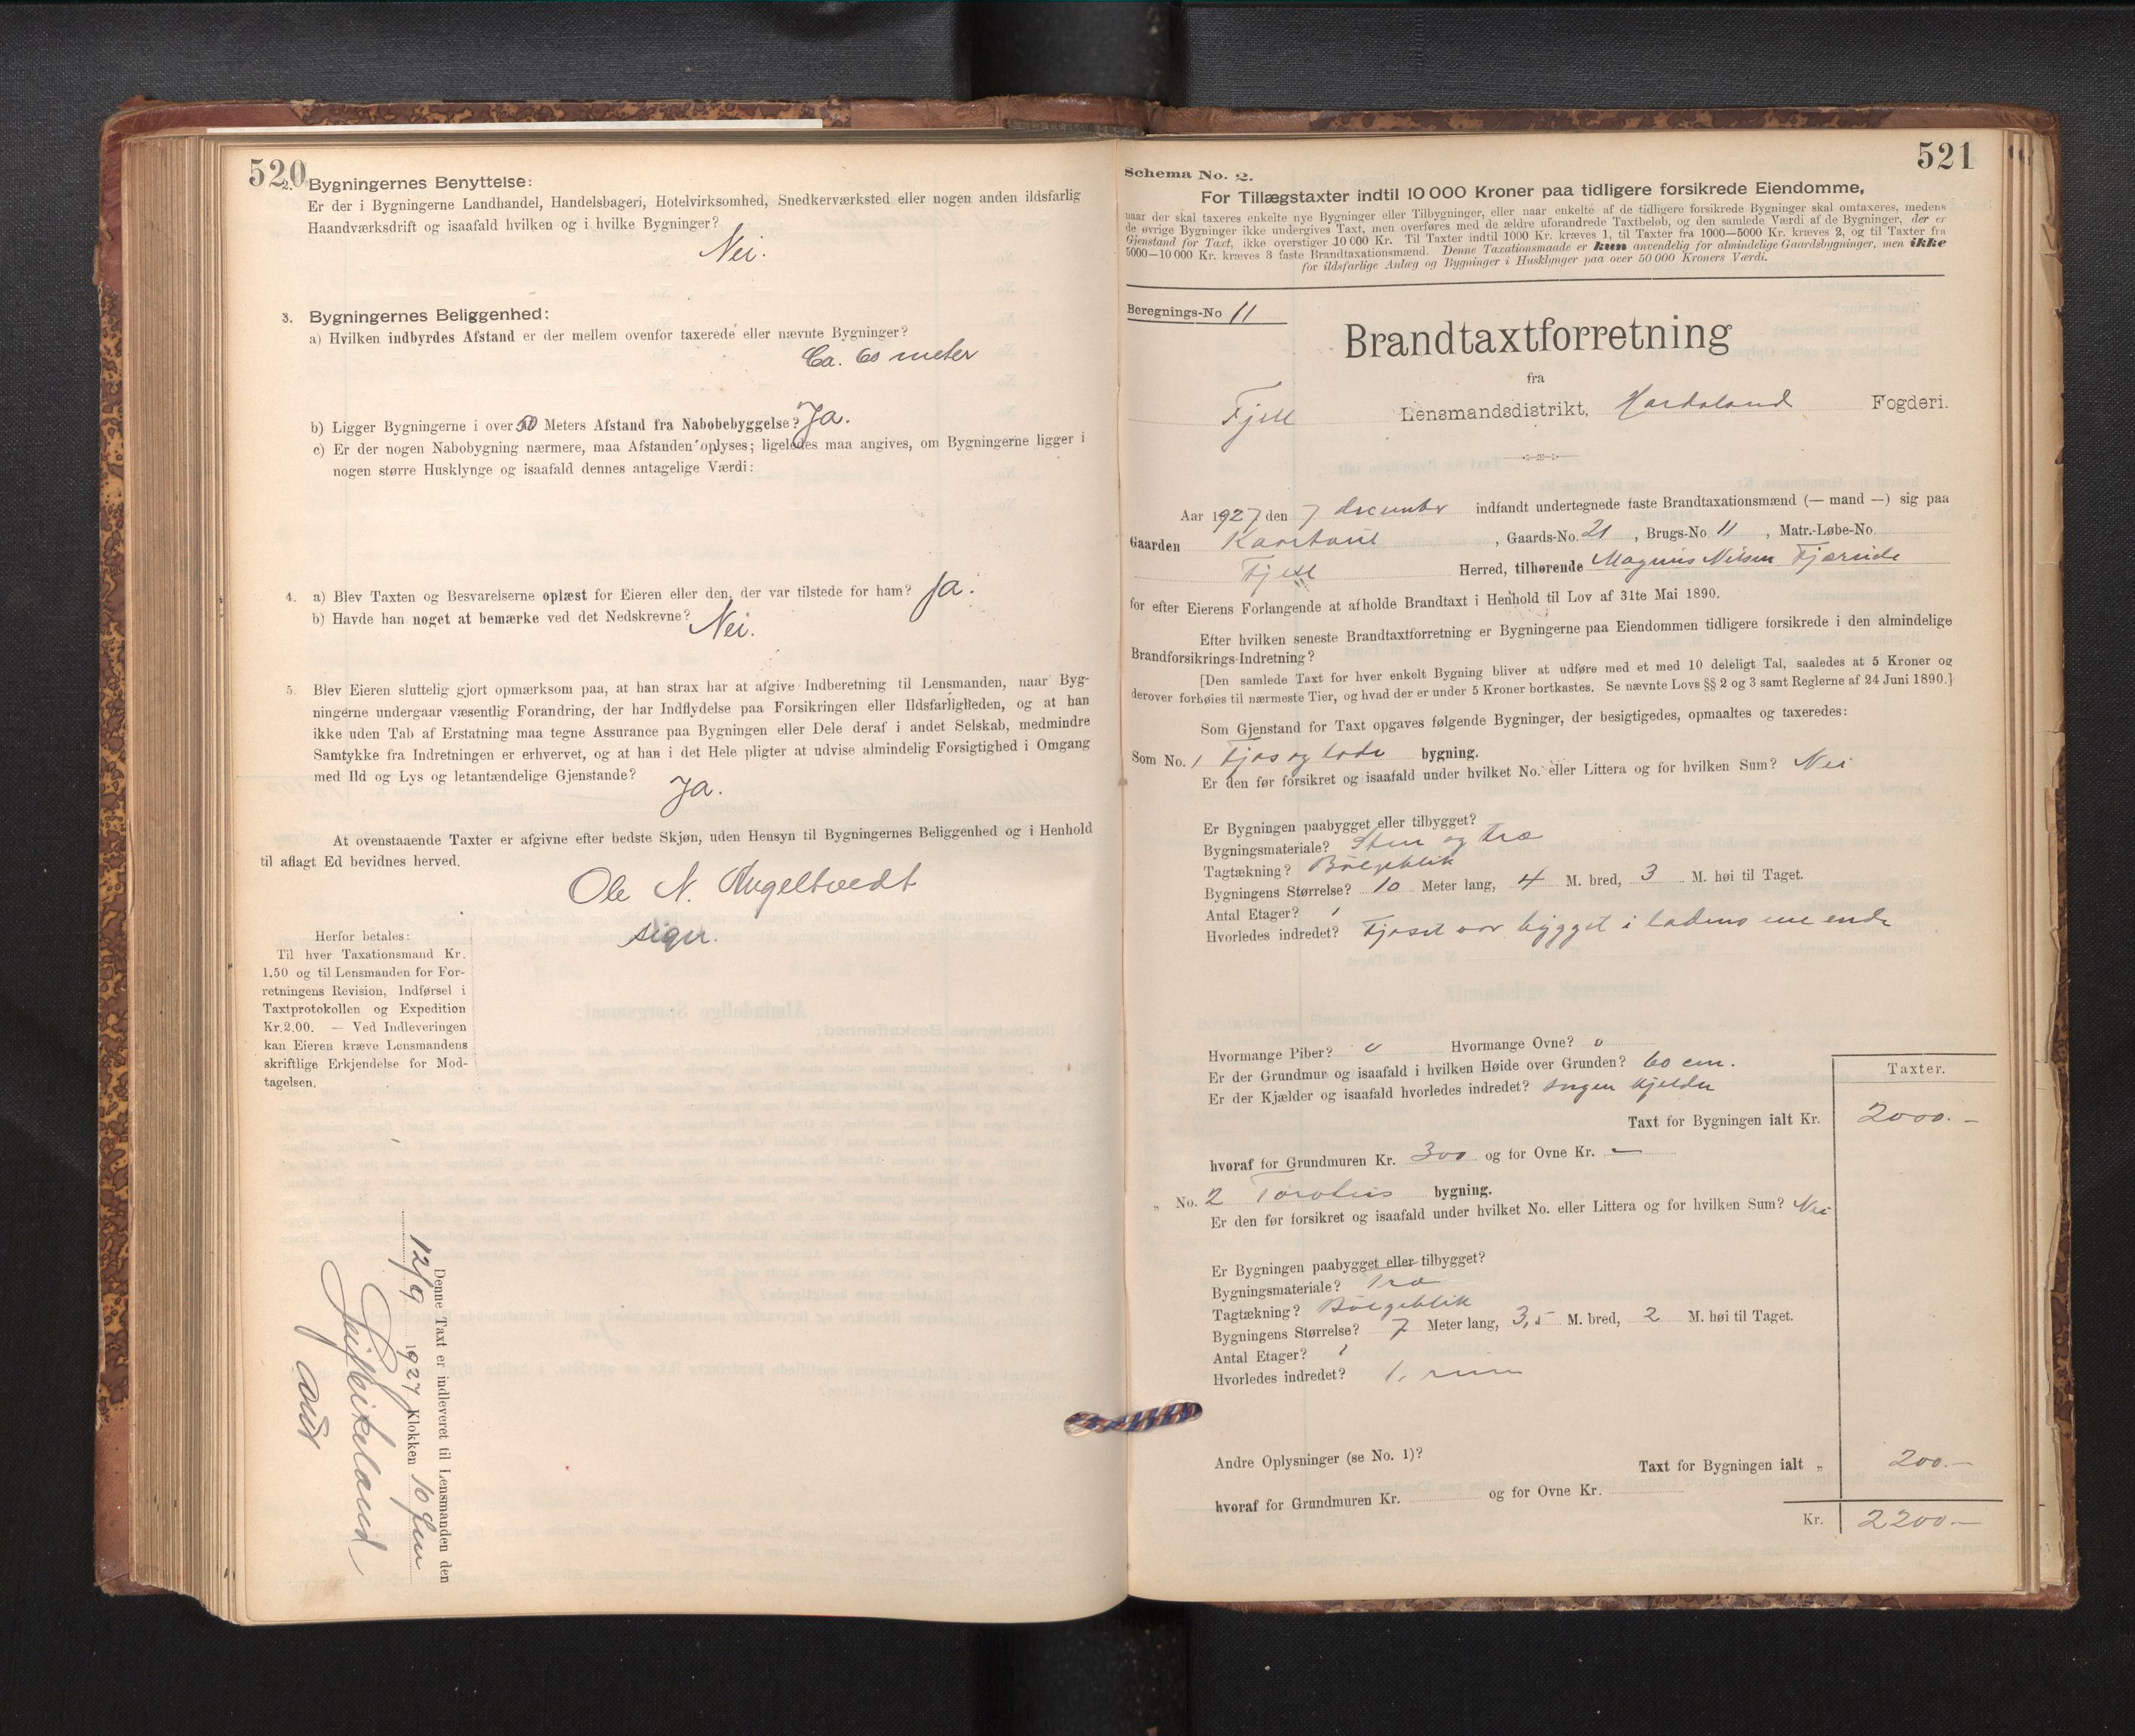 520
2. Bygningernes Benyttelse:
Er der i Bygningerne Landhandel, Handelsbageri, Hotelvirksomhed, Snedkerværksted eller nogen anden ildsfarlig
Haandværksdrift og isaafald hvilken og i hvilke Bygninger?
Nei.
3. Bygningernes Beliggenhed:
a) Hvilken indbyrdes Afstand er der mellem ovenfor taxerede eller nævnte Bygninger?
Ca. 60 meter
b) Ligger Bygningerne i over 50 Meters Afstand fra Nabobebyggelse? Ja.
c) Er der nogen Nabobygning nærmere, maa Afstanden oplyses; ligeledes maa angives, om Bygningerne ligger i
nogen større Husklynge og isaafald dennes antagelige Værdi:
4. a) Blev Taxten og Besvarelserne oplæst for Eieren eller den, der var tilstede for ham? Ja.
b) Havde han noget at bemærke ved det Nedskrevne? Nei.
5. Blev Eieren sluttelig gjort opmærksom paa, at han strax har at afgive Indberetning til Lensmanden, naar Byg-
ningerne undergaar væsentlig Forandring, der har Indflydelse paa Forsikringen eller Ildsfarligheden, og at han
ikke uden Tab af Erstatning maa tegne Assurance paa Bygningen eller Dele deraf i andet Selskab, medmindre
Samtykke fra Indretningen er erhvervet, og at han i det Hele pligter at udvise almindelig Forsigtighed i Omgang
med Ild og Lys og letantændelige Gjenstande?
Ja.
At ovenstaaende Taxter er afgivne efter bedste Skjøn, uden Hensyn til Bygningernes Beliggenhed og i Henhold
til aflagt Ed bevidnes herved.
Ole N. Angeltvedt
sign.
Herfor betales:
Til hver Taxationsmand Kr.
1,50 og til Lensmanden for For-
retningens Revision, Indførsel i
Taxtprotokollen og Expedition
Kr.2,00. — Ved Indleveringen
kan Eieren kræve Lensmandens
skriftlige Erkjendelse for Mod-
tagelsen.
Denne Taxt er indleveret til Lensmanden den
12/9 1927 Klokken 10
521
Schema No. 2.
For Tillægstaxter indtil 10 000 Kroner paa tidligere forsikrede Eiendomme,
naar der skal taxeres enkelte nye Bygninger eller Tilbygninger, eller naar enkelte af de tidligere forsikrede Bygninger skal omtaxeres, medens
de øvrige Bygninger ikke undergives Taxt, men overføres med de ældre uforandrede Taxtbeløb, og den samlede Værdi af de Bygninger, der er
Gjenstand for Taxt, ikke overstiger 10 000 Kr. Til Taxter indtil 1000 Kr. kræves 1, til Taxter fra 1000—5000 Kr. kræves 2, og til Taxter fra
5000—10 000 Kr. kræves 3 faste Brandtaxationsmænd. Denne Taxationsmaade er kun anvendelig for almindelige Gaardsbygninger, men ikke
for ildsfarlige Anlæg og Bygninger i Husklynger paa over 50 000 Kroners Værdi.
Beregnings-No 11
Brandtaxtforretning
fra
Fjell Lensmandsdistrikt, Hordaland Fogderi.
Aar 1927 den 7 december indfandt undertegnede faste Brandtaxationsmænd (— mand —) sig paa
Gaarden , Gaards-No. 21 , Brugs-No. 11 , Matr.-Løbe-No.
Fjell Herred, tilhørende Magnus Nilsen Fjæreide
for efter Eierens Forlangende at afholde Brandtaxt i Henhold til Lov af 31te Mai 1890.
Efter hvilken seneste Brandtaxtforretning er Bygningerne paa Eiendommen tidligere forsikrede i den almindelige
Brandforsikrings-Indretning?
[Den samlede Taxt for hver enkelt Bygning bliver at udføre med et med 10 deleligt Tal, saaledes at 5 Kroner og
derover forhøies til nærmeste Tier, og hvad der er under 5 Kroner bortkastes. Se nævnte Lovs §§ 2 og 3 samt Reglerne af 24 Juni 1890.]
Som Gjenstand for Taxt opgaves følgende Bygninger, der besigtigedes, opmaaltes og taxeredes:
Som No. 1 Fjøs og lade bygning.
Er den før forsikret og isaafald under hvilket No. eller Littera og for hvilken Sum? Nei
Er Bygningen paabygget eller tilbygget?
Bygningsmateriale? Sten og træ
Tagtækning? Bølgeblik
Bygningens Størrelse? 10 Meter lang, 4 M. bred, 3 M. høi til Taget.
Antal Etager? 1
Hvorledes indredet? Fjøset var bygget i ladens ene ende
Hvormange Piber? 0 Hvormange Ovne? 0
Er der Grundmur og isaafald i hvilken Høide over Grunden? 60 cm.
Er der Kjælder og isaafald hvorledes indredet? Ingen kjelder
Taxter.
Taxt for Bygningen ialt Kr. 2000.-
hvoraf for Grundmuren Kr. 300 og for Ovne Kr. -
„ No. 2 bygning.
Er den før forsikret og isaafald under hvilket No. eller Littera og for hvilken Sum? Nei
Er Bygningen paabygget eller tilbygget?
Bygningsmateriale? Træ
Tagtækning? Bølgeblik
Bygningens Størrelse? 7 Meter lang, 3,5 M. bred, 2 M. høi til Taget.
Antal Etager? 1
Hvorledes indredet? 1. rum
Andre Oplysninger (se No. 1)?
Taxt for Bygningen ialt „ 200.-
hvoraf for Grundmuren Kr. og for Ovne Kr.
Kr. 2200.-